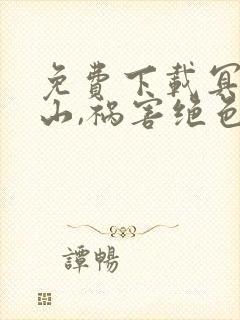 免費下載冥
山,祸害绝色
譚暢